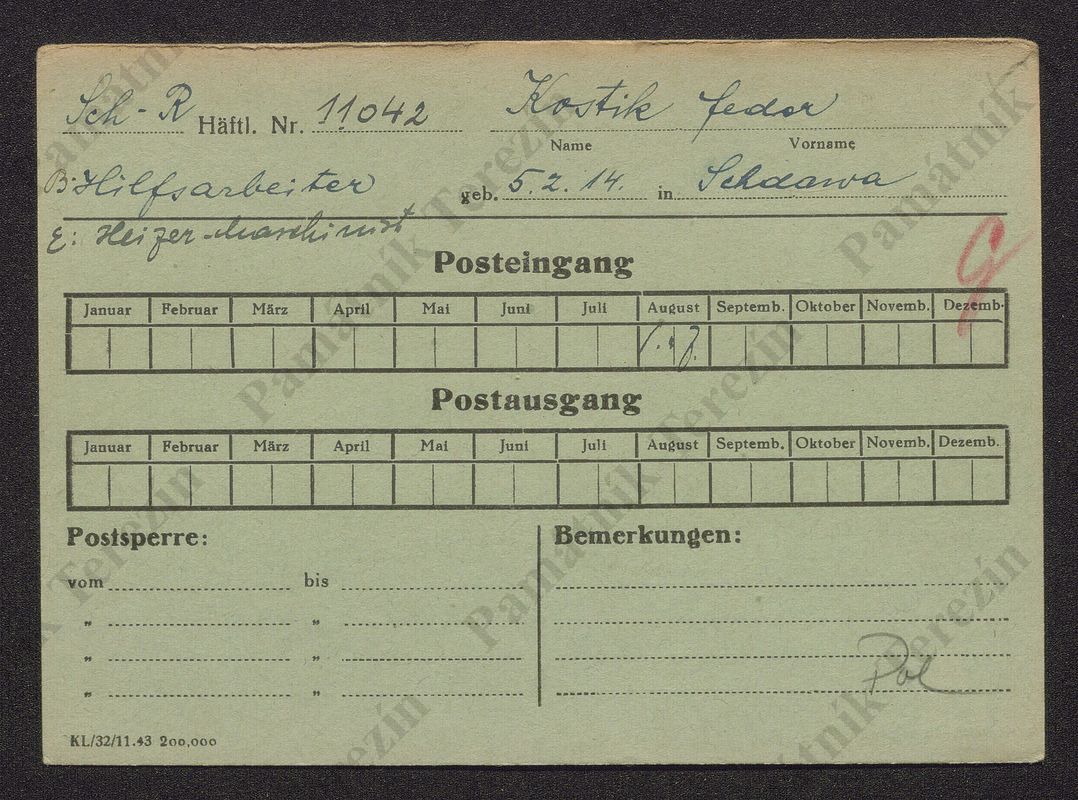 Sch-R Häftl. Nr. 11042 Kostik Fedor
Name Vorname
B: Hilfsarbeiter geb. 5.2.14. in Schdawa
E: Heizer-Maschinist
Posteingang
Januar Februar März April Mai Juni Juli August Septemb. Oktober Novemb. Dezemb.
Postausgang
Januar Februar März April Mai Juni Juli August Septemb. Oktober Novemb. Dezemb.
Postsperre: Bemerkungen:
vom bis
" "
" "
" "
Pol
KL/32/11.43 200,000
Památník Terezín